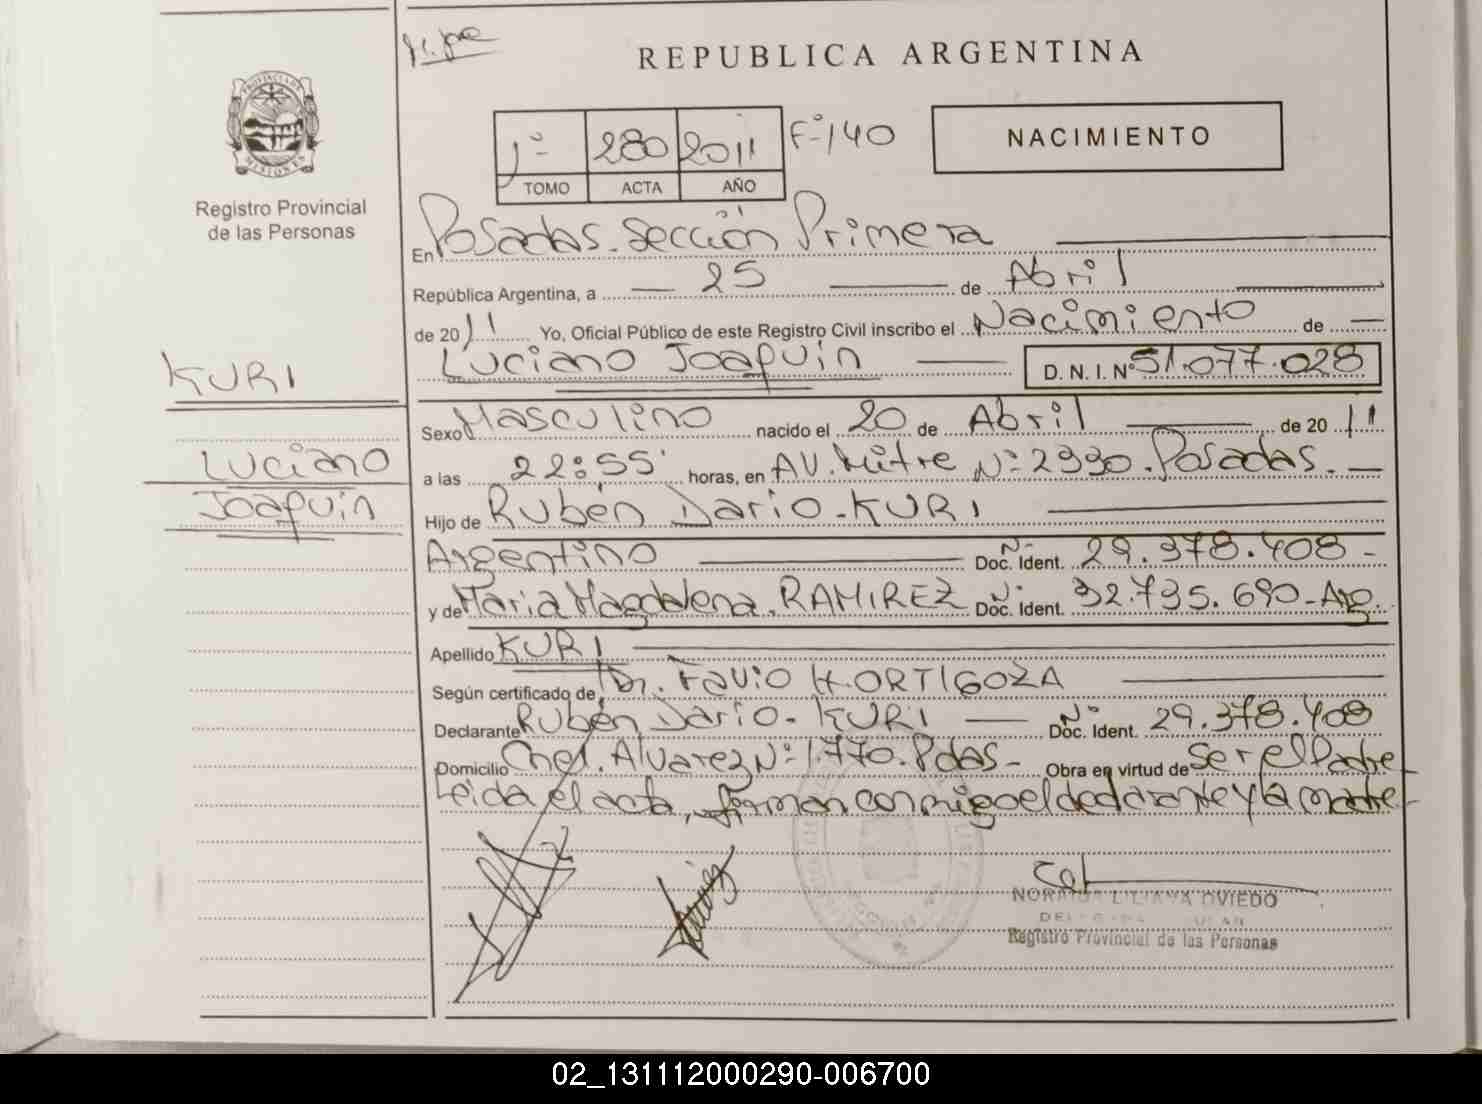 REPUBLICA ARGENTINA
PROVINCIA DE
MISIONES
Registro Provincial
de las Personas
1º 280 2011 Fº 140
TOMO ACTA AÑO
NACIMIENTO
En Posadas. Sección Primera
República Argentina, a 25 de Abril
de 2011 Yo, Oficial Público de este Registro Civil inscribo el Nacimiento de
Luciano Joaquín D. N. I. Nº 51.077.028
KURI
Luciano
Joaquín
Sexo Masculino nacido el 20 de Abril de 2011
a las 22:55' horas, en AV. Mitre Nº 2990. Posadas.
Hijo de Rubén Dario - KURI
Argentino Nº Doc. Ident. 29.378.408 -
y de Maria Magdalena. RAMIREZ Nº Doc. Ident. 32.735.690 - Arg.
Apellido KURI
Según certificado de Dr. Favio H. ORTIGOZA
Declarante Rubén Dario - KURI Nº Doc. Ident. 29.378.408
Domicilio Alvarez Nº 1.770. Pdas - Obra en virtud de Ser el Padre
Leida el acta, firman conmigo el declarante y la madre -
NORMA LILIANA OVIEDO
Registro Provincial de las Personas
02_131112000290-006700